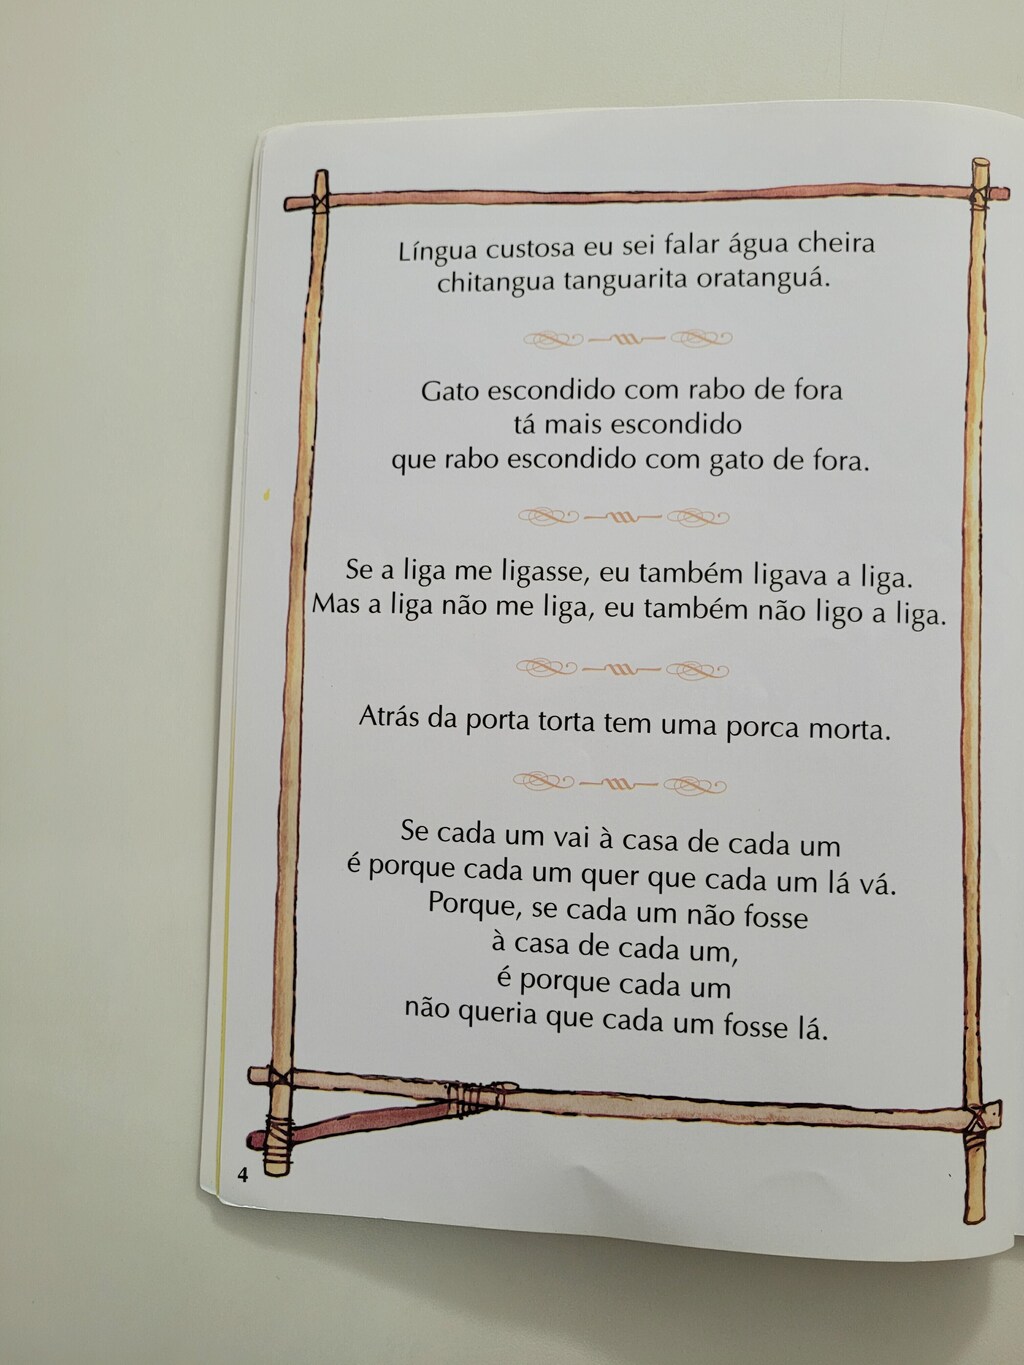 Língua custosa eu sei falar água cheira
chitangua tanguarita oratanguá.
Gato escondido com rabo de fora
tá mais escondido
que rabo escondido com gato de fora.
Se a liga me ligasse, eu também ligava a liga.
Mas a liga não me liga, eu também não ligo a liga.
Atrás da porta torta tem uma porca morta.
Se cada um vai à casa de cada um
é porque cada um quer que cada um lá vá.
Porque, se cada um não fosse
à casa de cada um,
é porque cada um
não queria que cada um fosse lá.
4